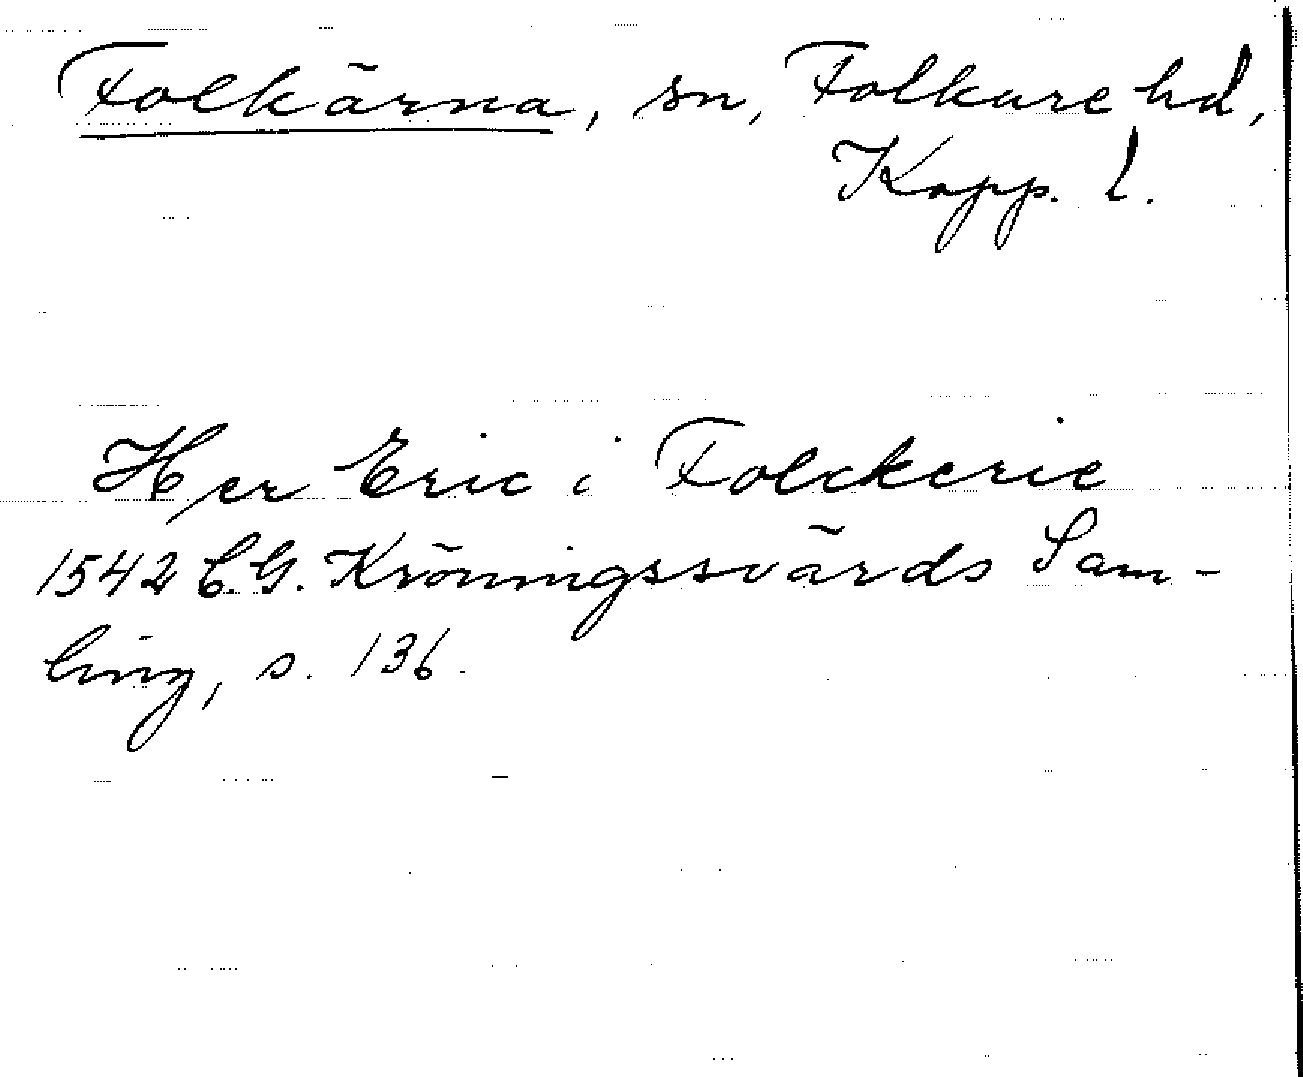 Folkärna, sn, Folkare hd,
Kopp. l.
Her Eric i Folckerie
1542 C.G. Kröningssvärds Sam-
ling, s. 136.